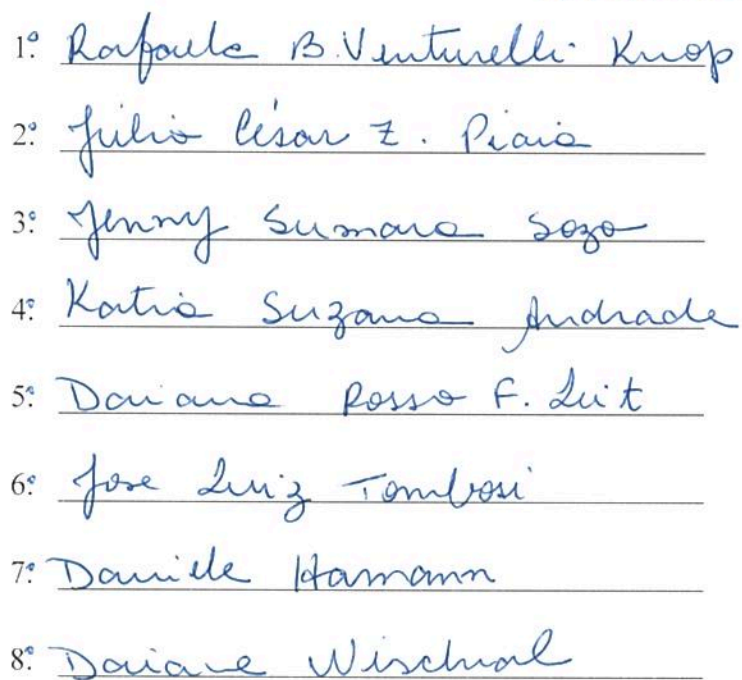 1º Rafaela B. Venturelli Knop
2º Júlio César Z. Piaia
3º Jenny Sumara Sozo
4º Katia Suzana Andrade
5º Daiana Rosso F.
6º Jose Luiz Tombosi
7º Daniele Hamann
8º Daiane Wischral